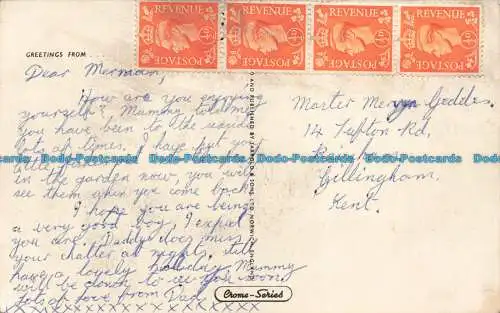 POSTAGE REVENUE ½D
POSTAGE REVENUE ½D
POSTAGE REVENUE ½D
POSTAGE REVENUE ½D
GREETINGS FROM
Dear Merman,
How are you enjoying
yourself? Mummy told me
you have been to the
lots of times. I have put
in the garden now, you will
see them when you come back
I hope you are being
a very good boy, I expect
you are, Daddy does miss
your chatter at night, still
have a lovely holiday, Mummy
will be down to see you soon,
lots of love from Dad,
x x x x x x x x
Master Mervyn Geddes,
14 Tufton Rd,
Gillingham,
Kent.
AND PUBLISHED BY JARROLD & SONS LTD NORWICH
Crome-Series
Bodo-Postcards Bodo-Postcards Bodo-Postcards Bodo-Postcards